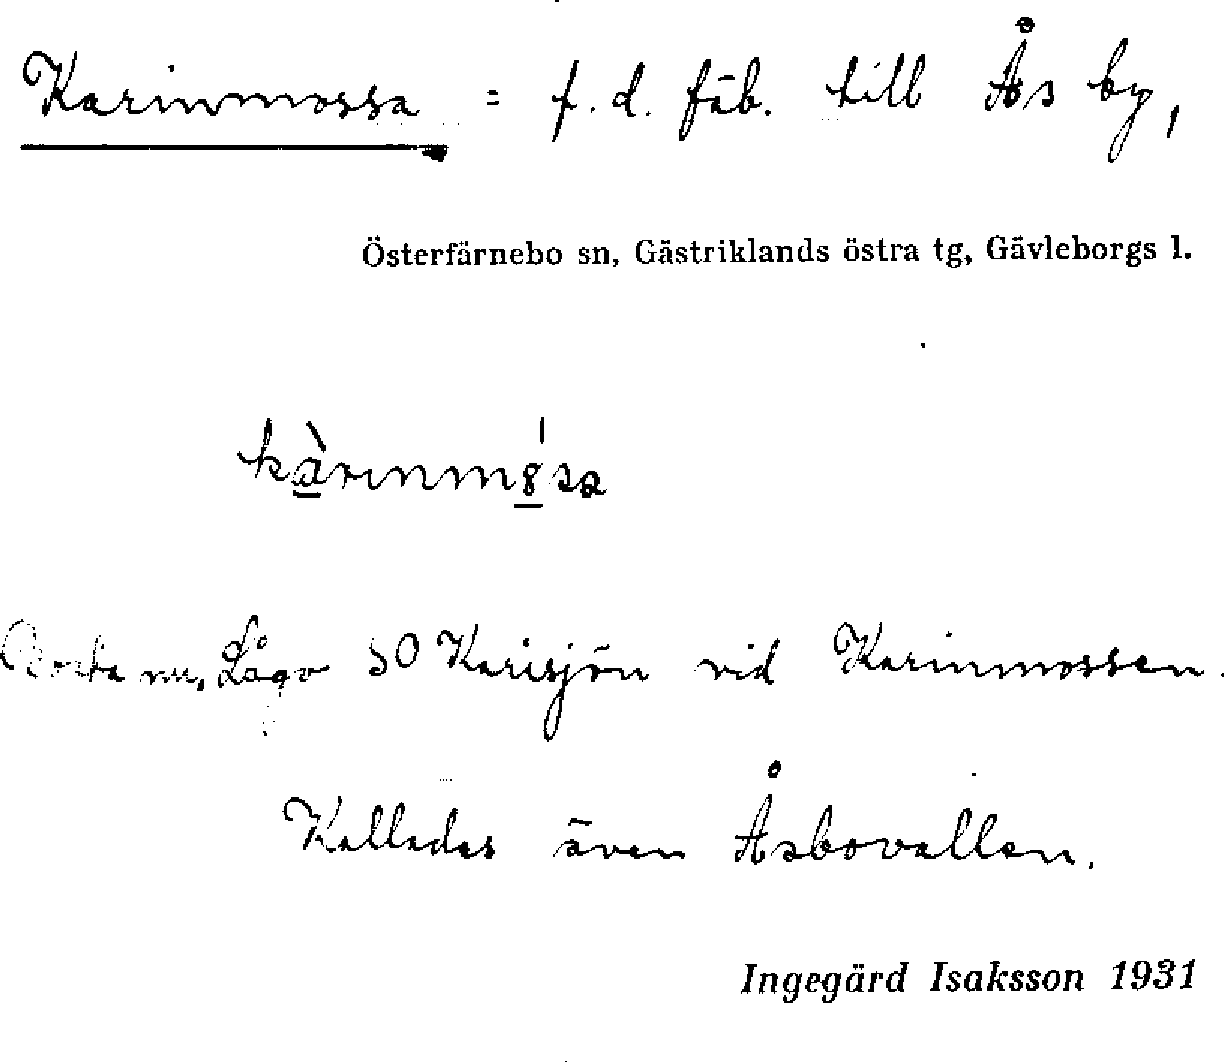 Karinmossa = f.d. fäb. till Ås by,
Österfärnebo sn, Gästriklands östra tg, Gävleborgs l.
kàrınmósa
Borta nu. Lågo SO Karisjön vid Karinmossen.
Kallades även Åsbovallen.
Ingegärd Isaksson 1931